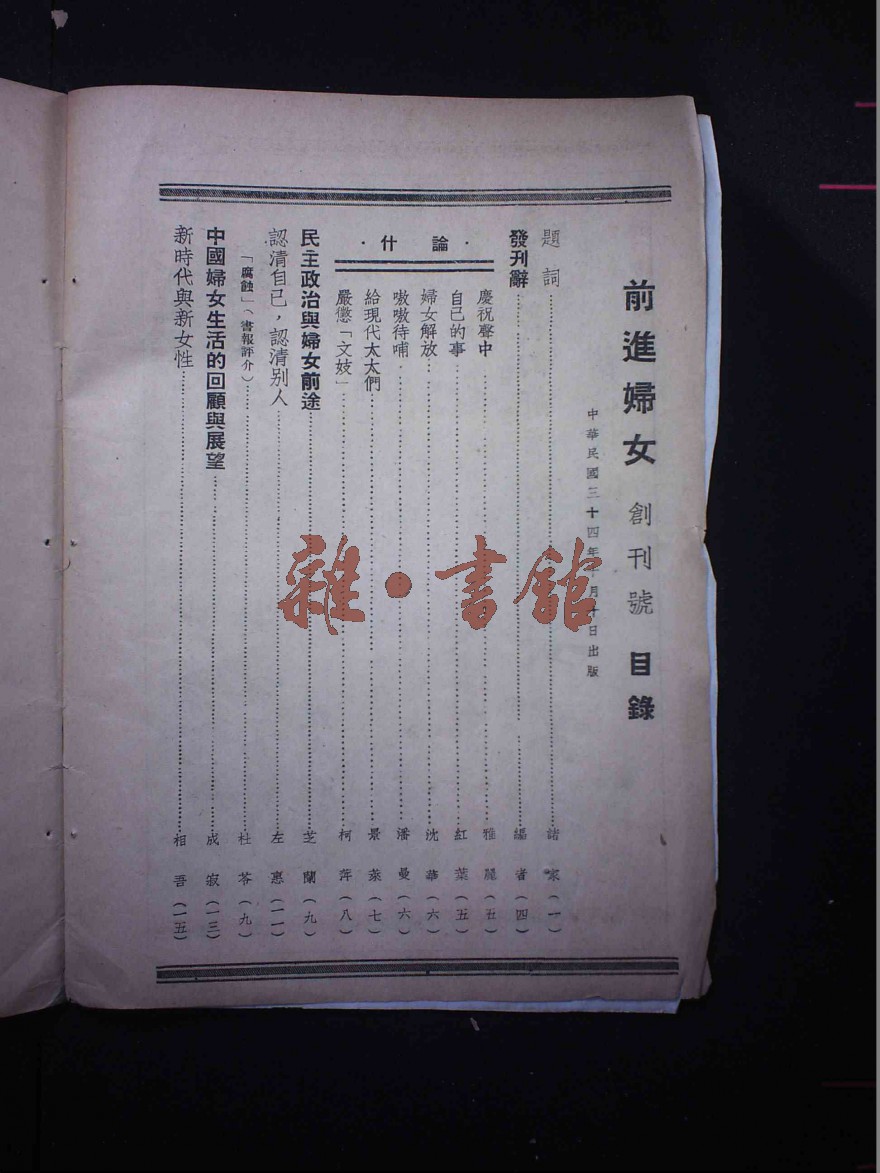 前進婦女 創刊號 目錄
中華民國三十四年十月十日出版
題詞……諸家(一)
發刊辭……編者(四)
·論什·
慶祝聲中……雅麗(五)
自己的事……紅葉(五)
婦女解放……沈華(六)
嗷嗷待哺……潘曼(六)
給現代太太們……景萊(七)
嚴懲「文妓」……柯萍(八)
民主政治與婦女前途……芝蘭(九)
認清自己,認清別人……左惠(一一)
「腐蝕」(書報評介)……杜苓(九)
中國婦女生活的回顧與展望……成寂(一三)
新時代與新女性……相吾(一五)
雜·書館